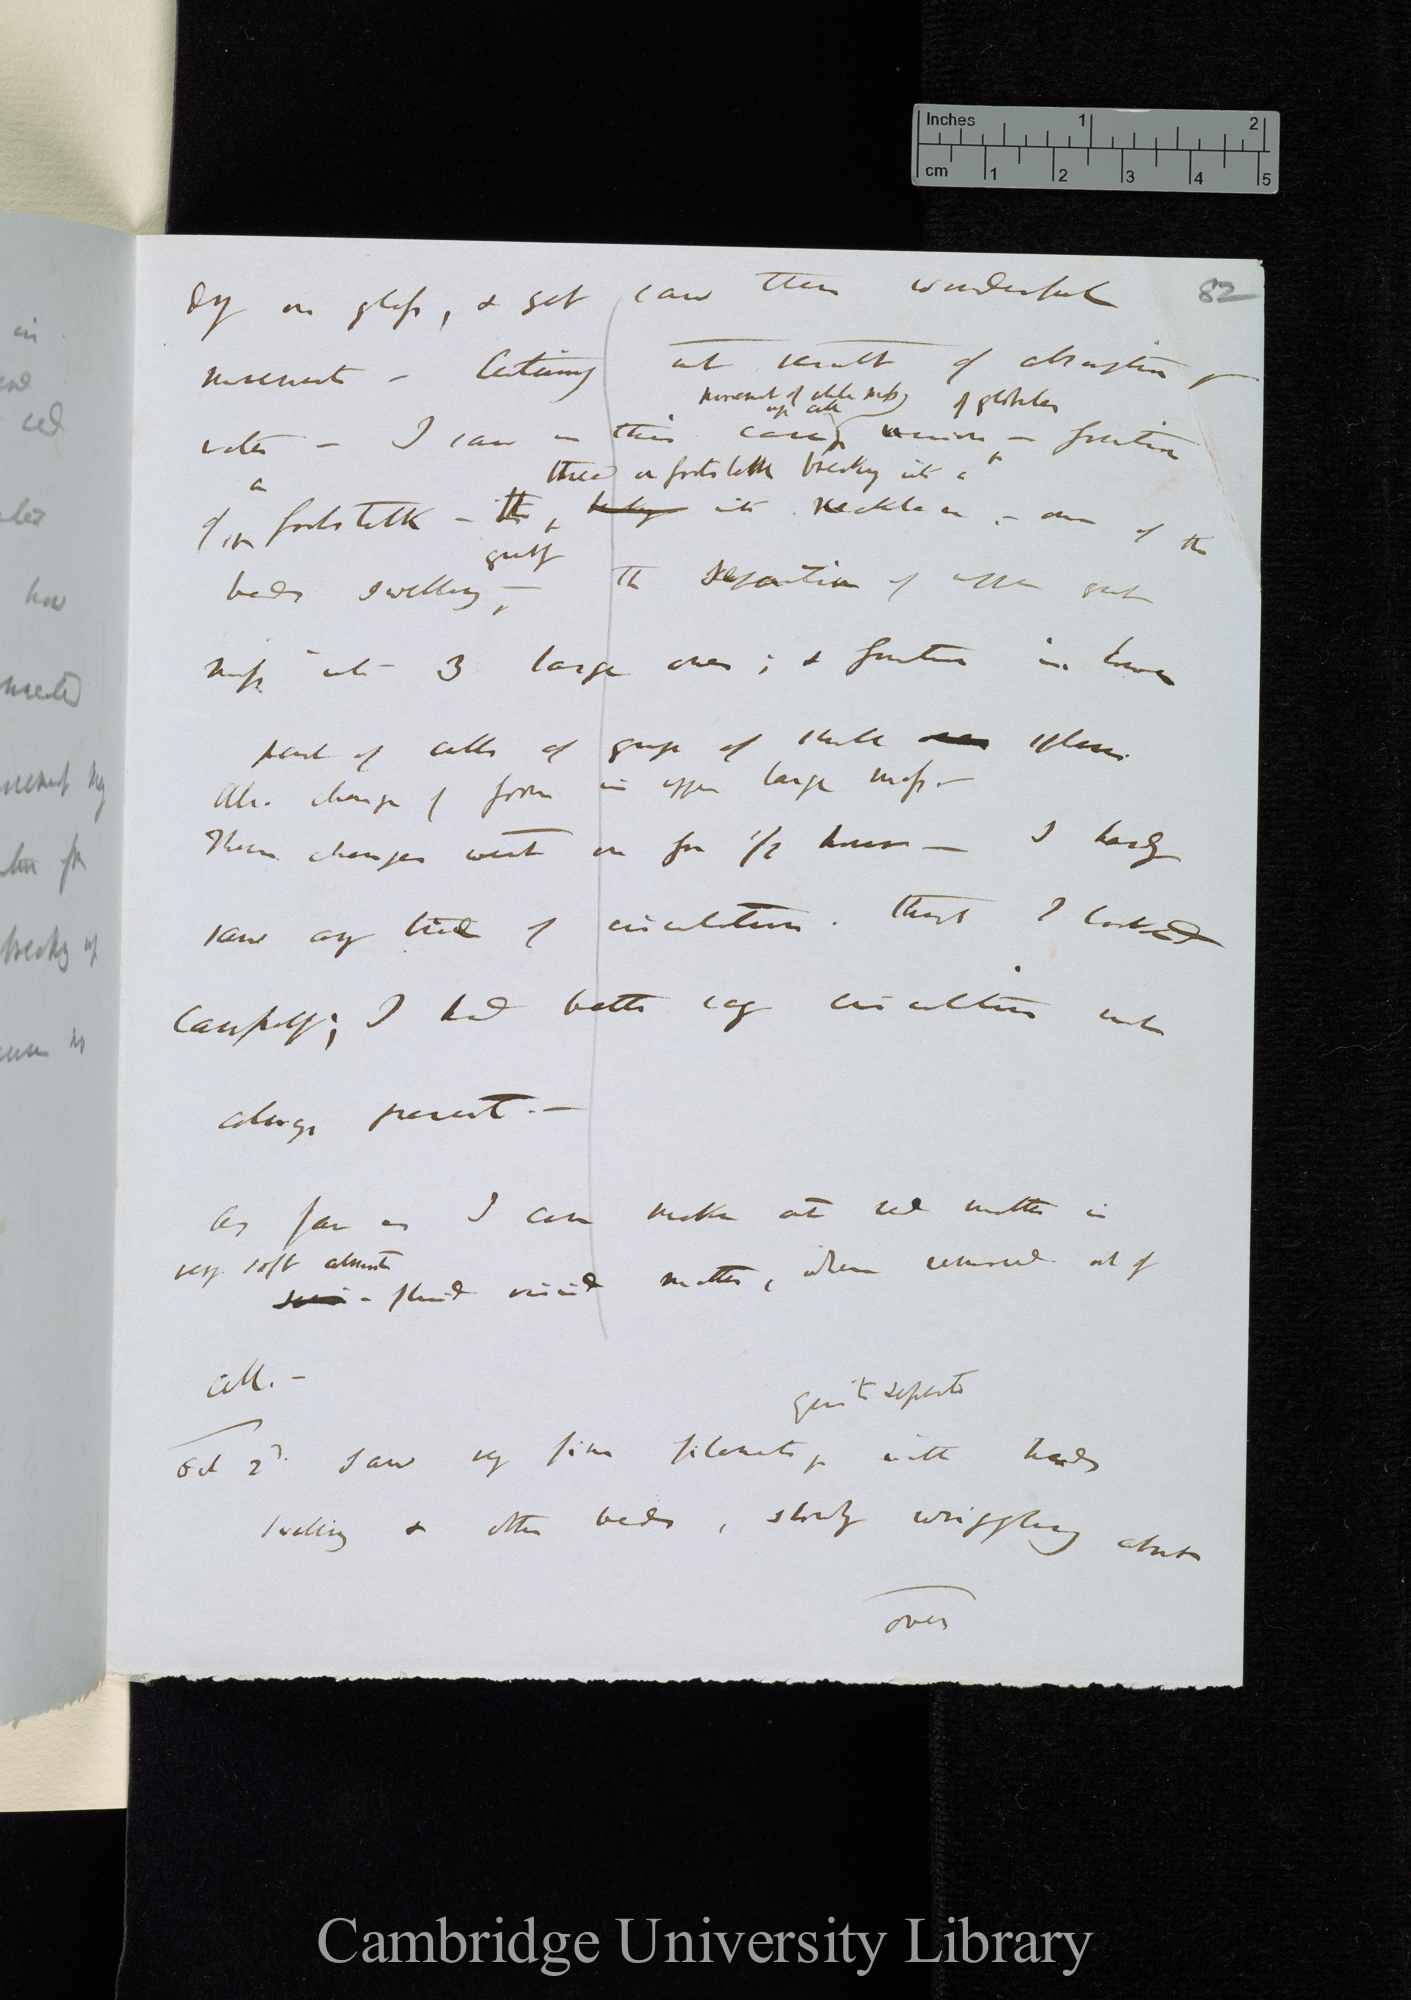 Inches 1 2
cm 1 2 3 4 5
82
dry on glass, & yet saw these wonderful
movements — Certainly not result of absorption of
movement of whole mass
up cell
of globules
water — I saw in this case, union — fusion
thread or footstalk breaking into a
a
of footstalk — the into necklace, — one of the
greatly
beads swelling, — The separation of upper great
mass into 3 large ones; & fusion in lower
part of cells of group of small spheres
Also change of form in upper large mass —
These changes went on for 1/2 hour — I hardly
saw any kind of circulation. though I looked
carefully; I had better say circulation not
always present. —
As far as I can make out red matter is
very soft almost
fluid viscid matter, when removed out of
cell. —
quite separate
Oct 2d. Saw very fine filaments, with beads
swelling & other beads, slowly wriggling about
over
in
red
how
breaking up
Cambridge University Library